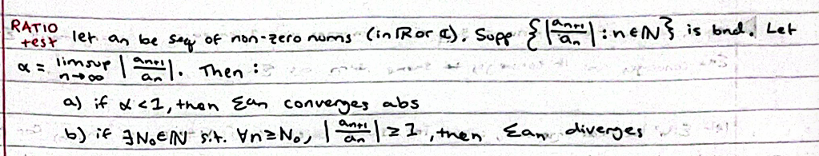 RATIO test let an be seq of non-zero nums (in ℝ or ℂ). Supp {|an+1/an| : n∈ℕ} is bnd. Let
α = limsup n→∞ |an+1/an|. Then :
a) if α<1, then Σan converges abs
b) if ∃N₀∈ℕ s.t. ∀n≥N₀, |an+1/an| ≥ 1, then Σan diverges